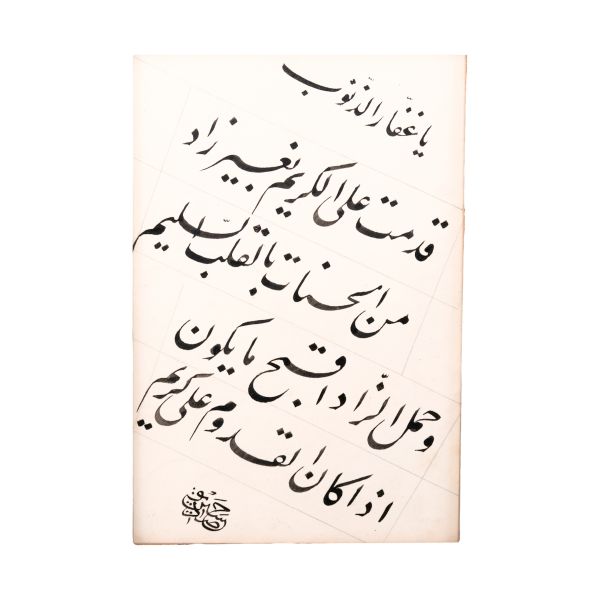 يا غفّار الذّنوب
قدمت على الكريم بغير زاد
من الحسنات بالقلب السّليم
وحمل الزّاد اقبح ما يكون
اذا كان القدوم على كريم